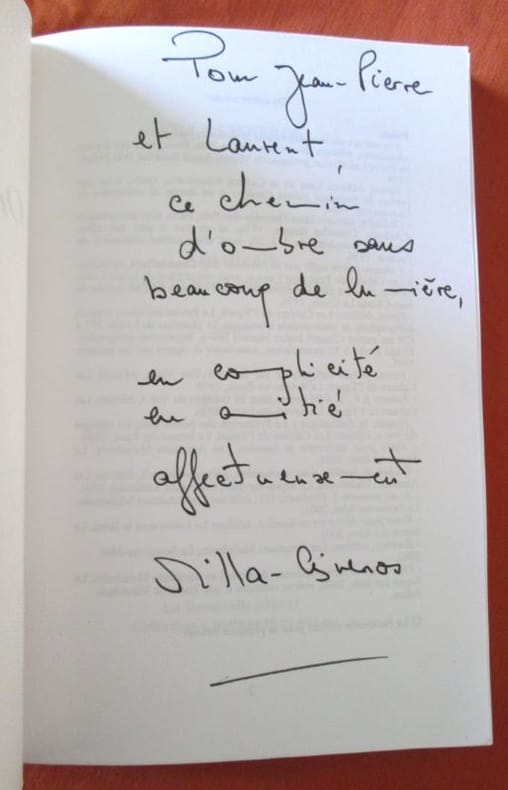 Pour Jean-Pierre
et Laurent,
ce chemin
d'ombre sans
beaucoup de lumière,
en complicité
en amitié
affectueusement